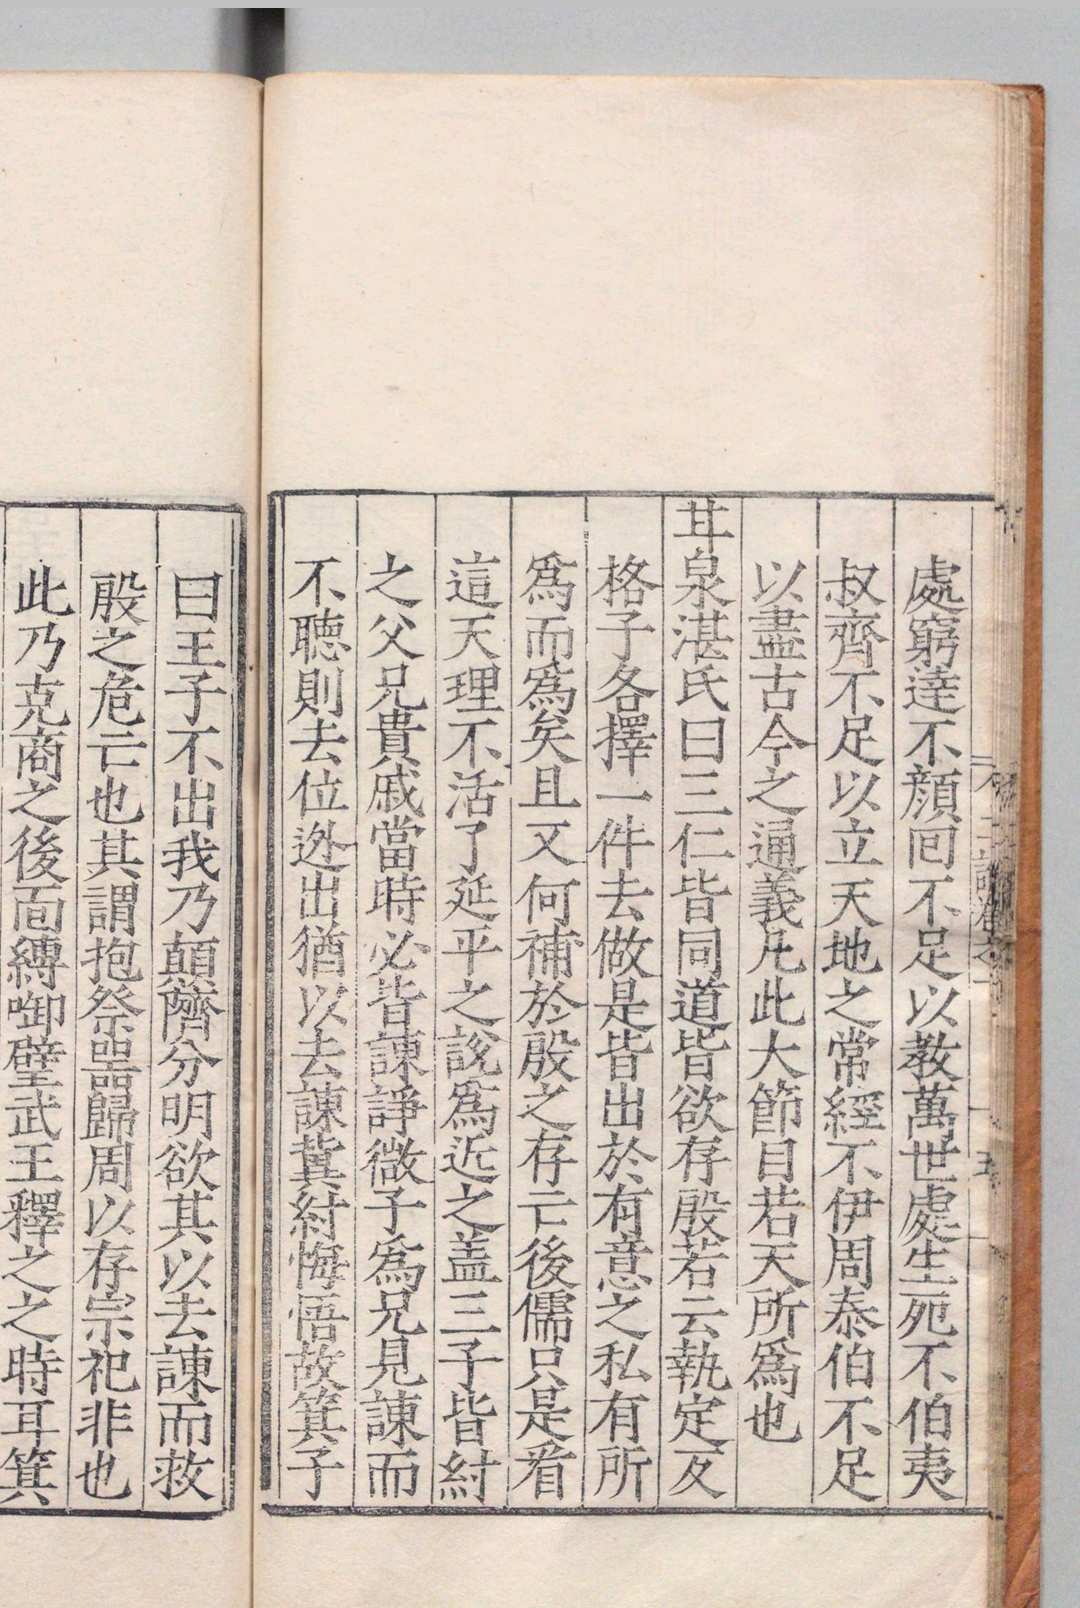 處窮達不顔囘不足以教萬世處生死不伯夷
叔齊不足以立天地之常經不伊周泰伯不足
以盡古今之通義凡此大節目若天所爲也
甘泉湛氏曰三仁皆同道皆欲存殷若云執定叐
格子各擇一件去做是皆出於有意之私有所
爲而爲矣且又何補於殷之存亡後儒只是看
這天理不活了延平之說爲近之盖三子皆紂
之父兄貴戚當時必皆諫諍微子爲兄見諫而
不聴則去位迯出猶以去諫冀紂悔悟故箕子
曰王子不出我乃顛隮分明欲其以去諫而救
殷之危亡也其謂抱祭噐歸周以存宗祀非也
此乃克商之後面縛啣璧武王釋之之時耳箕